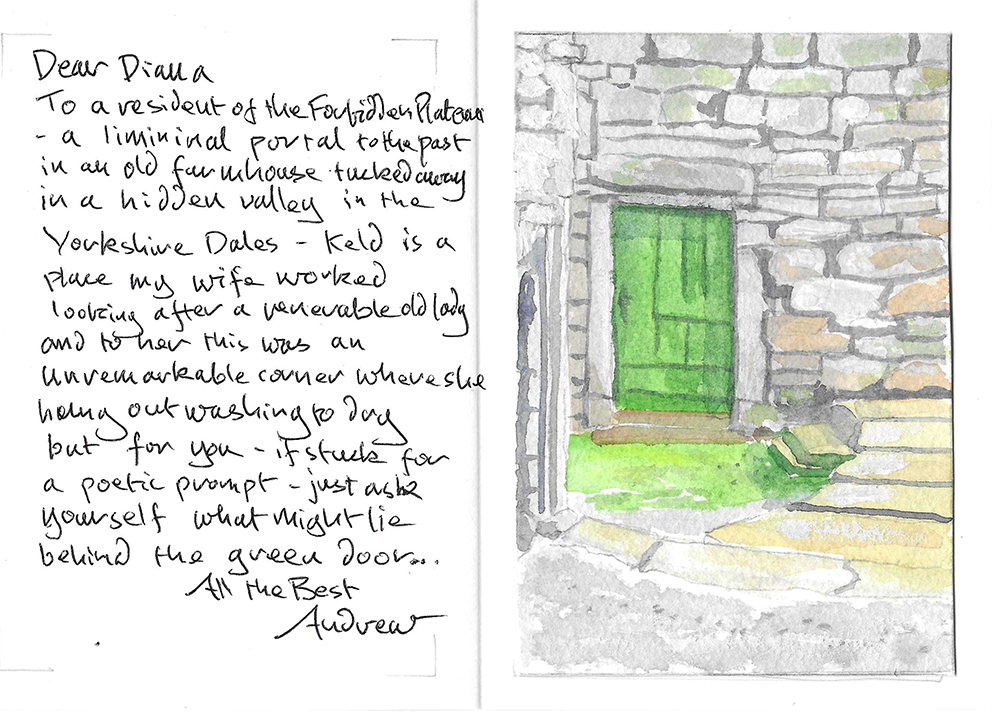 Dear Diana
To a resident of the Forbidden Plateau
- a limininal portal to the past
in an old farmhouse tucked away
in a hidden valley in the
Yorkshire Dales - Keld is a
place my wife worked
looking after a venerable old lady
and to her this was an
unremarkable corner where she
hung out washing to dry
but for you - if stuck for
a poetic prompt - just ask
yourself what might lie
behind the green door...
All the Best
Andrew